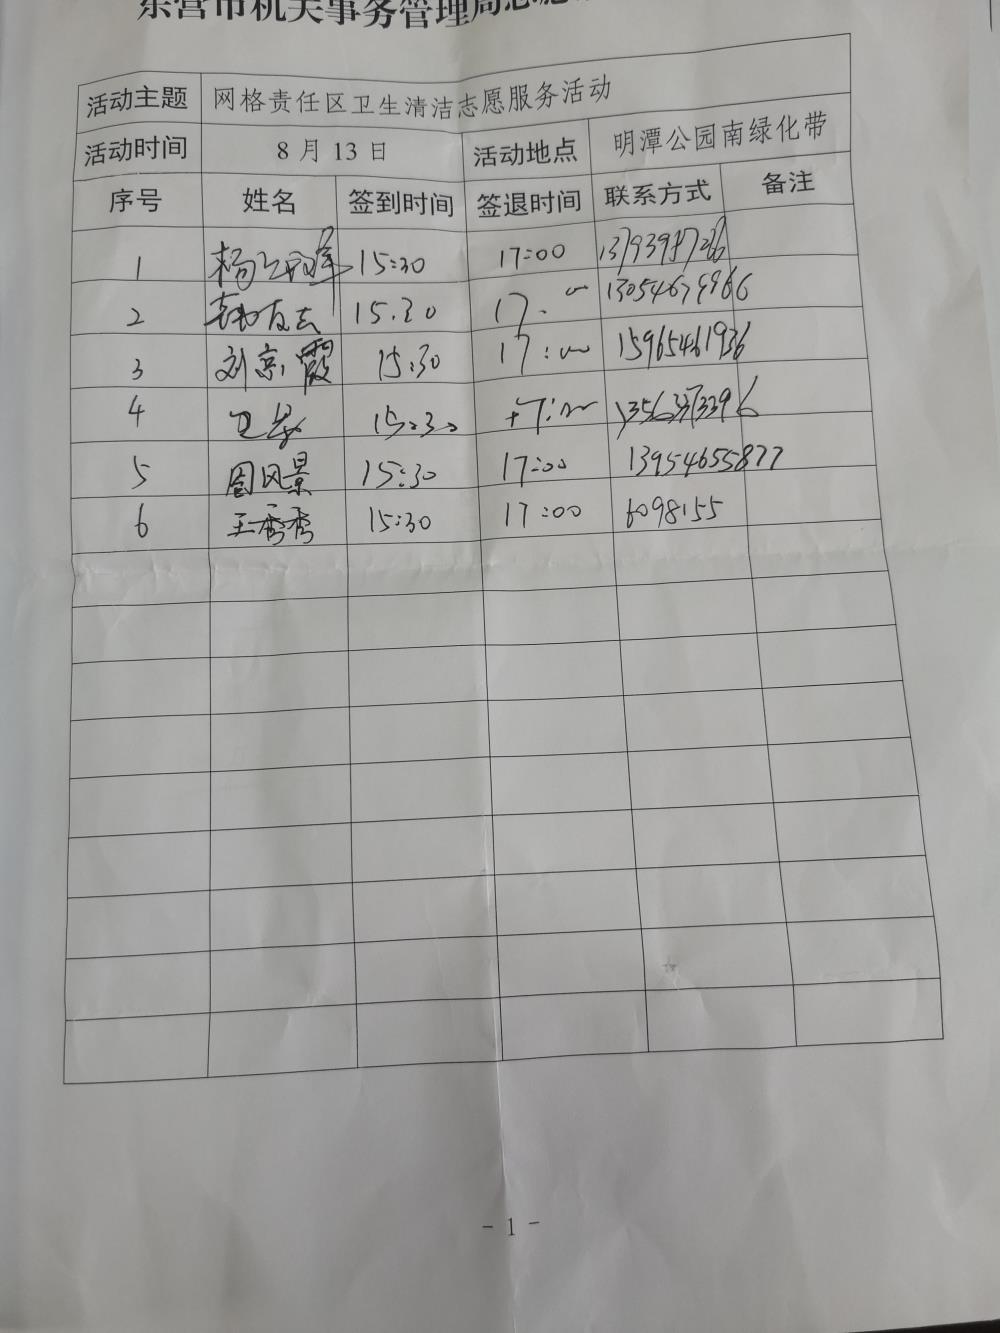 东营市机关事务管理局志愿
活动主题 网格责任区卫生清洁志愿服务活动
活动时间 8月13日 活动地点 明潭公园南绿化带
序号 姓名 签到时间 签退时间 联系方式 备注
1 15:30 17:00
2 韩友志 15.30 17. 00 13054679966
3 刘京霞 15:30 17:00 15965461936
4 15:30 17:00
5 周风景 15:30 17:00 13954655877
6 王秀秀 15:30 17:00 6098155
- 1 -